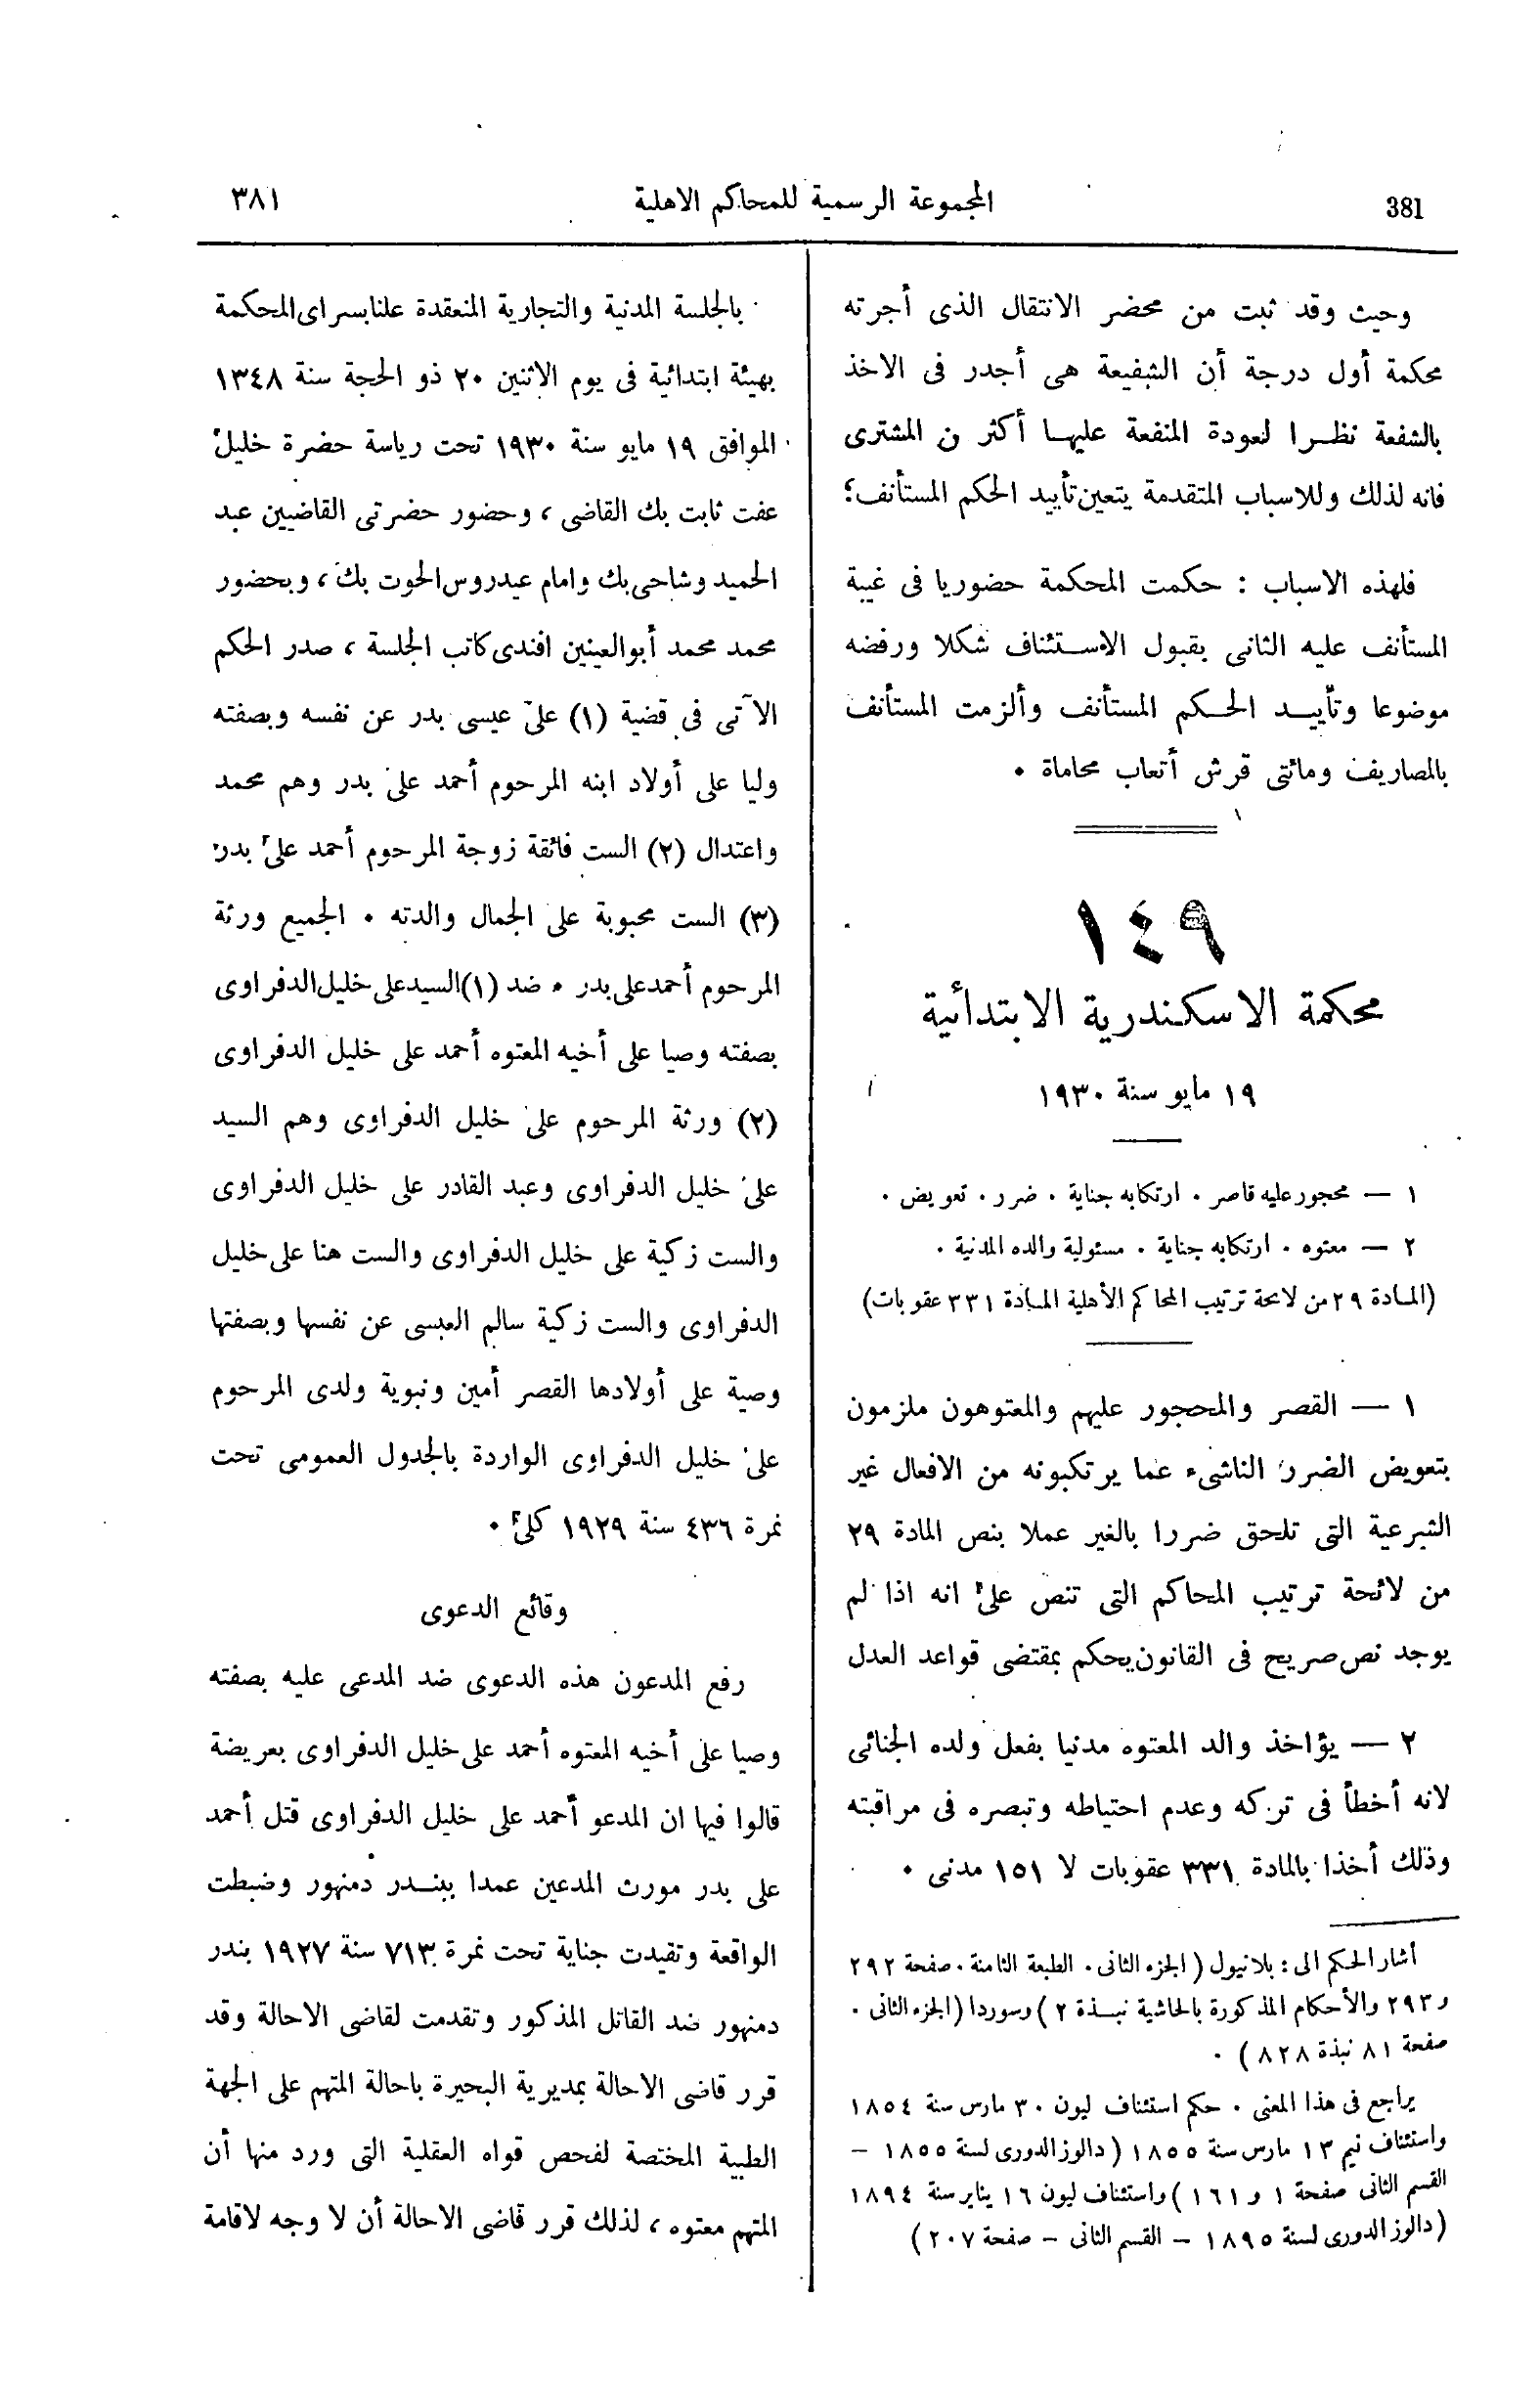 381
المجموعة الرسمية للمحاكم الاهلية
٣٨١
وحيث وقد ثبت من محضر الانتقال الذى أجرته
محكمة أول درجة أن الشفيعة هى أجدر فى الاخذ
بالشفعة نظرا لعودة المنفعة عليها أكثر ن المشترى
فانه لذلك وللاسباب المتقدمة يتعين تأييد الحكم المستأنف؛
فلهذه الاسباب : حكمت المحكمة حضوريا فى غيبة
المستأنف عليه الثانى بقبول الاستئناف شكلا ورفضه
موضوعا وتأييد الحكم المستأنف وألزمت المستأنف
بالمصاريف ومائتى قرش أتعاب محاماة ٠
١٤٩
محكمة الاسكندرية الابتدائية
١٩ مايو سنة ١٩٣٠
١ — محجور عليه قاصر ٠ ارتكابه جناية ٠ ضرر ٠ تعويض ٠
٢ — معتوه ٠ ارتكابه جناية ٠ مسئولية والده المدنية ٠
(المادة ٢٩ من لائحة ترتيب المحاكم الأهلية المادة ٣٣١ عقوبات)
١ — القصر والمحجور عليهم والمعتوهون ملزمون
بتعويض الضرر الناشىء عما يرتكبونه من الافعال غير
الشرعية التى تلحق ضررا بالغير عملا بنص المادة ٢٩
من لائحة ترتيب المحاكم التى تنص على انه اذا لم
يوجد نص صريح فى القانون يحكم بمقتضى قواعد العدل
٢ — يؤاخذ والد المعتوه مدنيا بفعل ولده الجنائى
لانه أخطأ فى تركه وعدم احتياطه وتبصره فى مراقبته
وذلك أخذا بالمادة ٣٣١ عقوبات لا ١٥١ مدنى ٠
أشار الحكم الى : بلانيول (الجزء الثانى ٠ الطبعة الثامنة ٠ صفحة ٢٩٢
و٢٩٣ والأحكام المذكورة بالحاشية نبذة ٢) وسوردا (الجزء الثانى ٠
صفحة ٨١ نبذة ٨٢٨) ٠
يراجع فى هذا المعنى ٠ حكم استئناف ليون ٣٠ مارس سنة ١٨٥٤
واستئناف نيم ١٣ مارس سنة ١٨٥٥ (دالوز الدورى لسنة ١٨٥٥ –
القسم الثانى صفحة ١ و١٦١) واستئناف ليون ١٦ يناير سنة ١٨٩٤
(دالوز الدورى لسنة ١٨٩٥ – القسم الثانى – صفحة ٢٠٧)
بالجلسة المدنية والتجارية المنعقدة علنا بسراى المحكمة
بهيئة ابتدائية فى يوم الاثنين ٢٠ ذو الحجة سنة ١٣٤٨
الموافق ١٩ مايو سنة ١٩٣٠ تحت رياسة حضرة خليل
عفت ثابت بك القاضى ، وحضور حضرتى القاضيين عبد
الحميد وشاحى بك وامام عيدروس الحوت بك ، وبحضور
محمد محمد أبو العينين افندى كاتب الجلسة ، صدر الحكم
الآتى فى قضية (١) على عيسى بدر عن نفسه وبصفته
وليا على أولاد ابنه المرحوم أحمد على بدر وهم محمد
واعتدال (٢) الست فائقة زوجة المرحوم أحمد على بدر
(٣) الست محبوبة على الجمال والدته ٠ الجميع ورثة
المرحوم أحمد على بدر ٠ ضد (١) السيد على خليل الدفراوى
بصفته وصيا على أخيه المعتوه أحمد على خليل الدفراوى
(٢) ورثة المرحوم على خليل الدفراوى وهم السيد
على خليل الدفراوى وعبد القادر على خليل الدفراوى
والست زكية على خليل الدفراوى والست هنا على خليل
الدفراوى والست زكية سالم العبسى عن نفسها وبصفتها
وصية على أولادها القصر أمين ونبوية ولدى المرحوم
على خليل الدفراوى الواردة بالجدول العمومى تحت
نمرة ٤٣٦ سنة ١٩٢٩ كلى ٠
وقائع الدعوى
رفع المدعون هذه الدعوى ضد المدعى عليه بصفته
وصيا على أخيه المعتوه أحمد على خليل الدفراوى بعريضة
قالوا فيها ان المدعو أحمد على خليل الدفراوى قتل أحمد
على بدر مورث المدعين عمدا ببندر دمنهور وضبطت
الواقعة وتقيدت جناية تحت نمرة ٧١٣ سنة ١٩٢٧ بندر
دمنهور ضد القاتل المذكور وتقدمت لقاضى الاحالة وقد
قرر قاضى الاحالة بمديرية البحيرة باحالة المتهم على الجهة
الطبية المختصة لفحص قواه العقلية التى ورد منها أن
المتهم معتوه ، لذلك قرر قاضى الاحالة أن لا وجه لاقامة